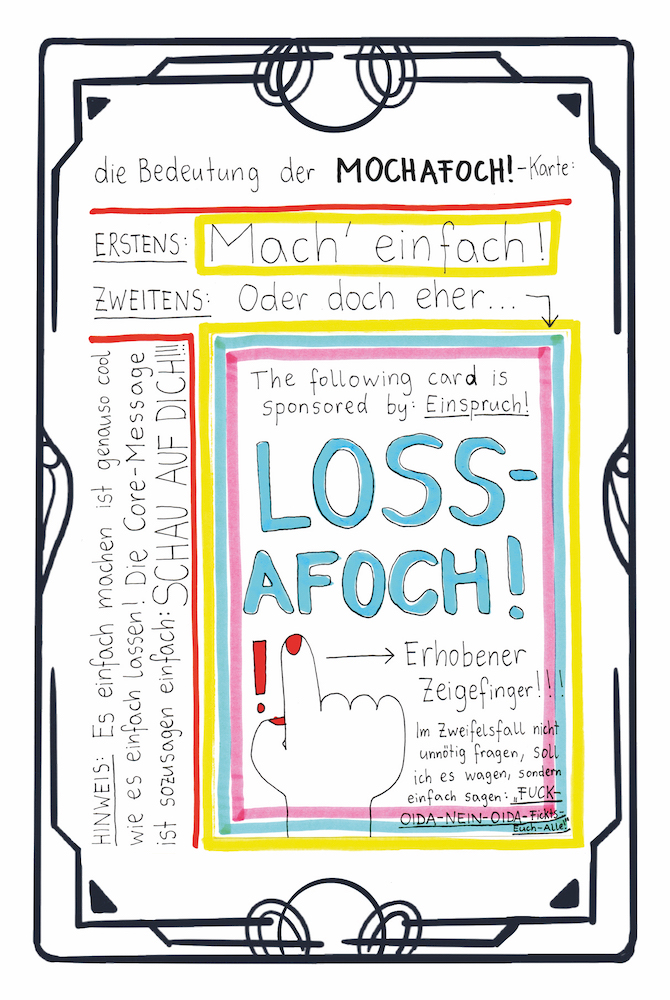 die Bedeutung der MOCHAFOCH!-Karte:
ERSTENS: Mach' einfach!
ZWEITENS: Oder doch eher...
HINWEIS: Es einfach machen ist genauso cool
wie es einfach lassen! Die Core-Message
ist sozusagen einfach: SCHAU AUF DICH!!!
The following card is
sponsored by: Einspruch!
LOSS-
AFOCH!
! → Erhobener
Zeigefinger!!!
Im Zweifelsfall nicht
unnötig fragen, soll
ich es wagen, sondern
einfach sagen: „FUCK-
OIDA-NEIN-OIDA-Fickts-
Euch-Alle!"